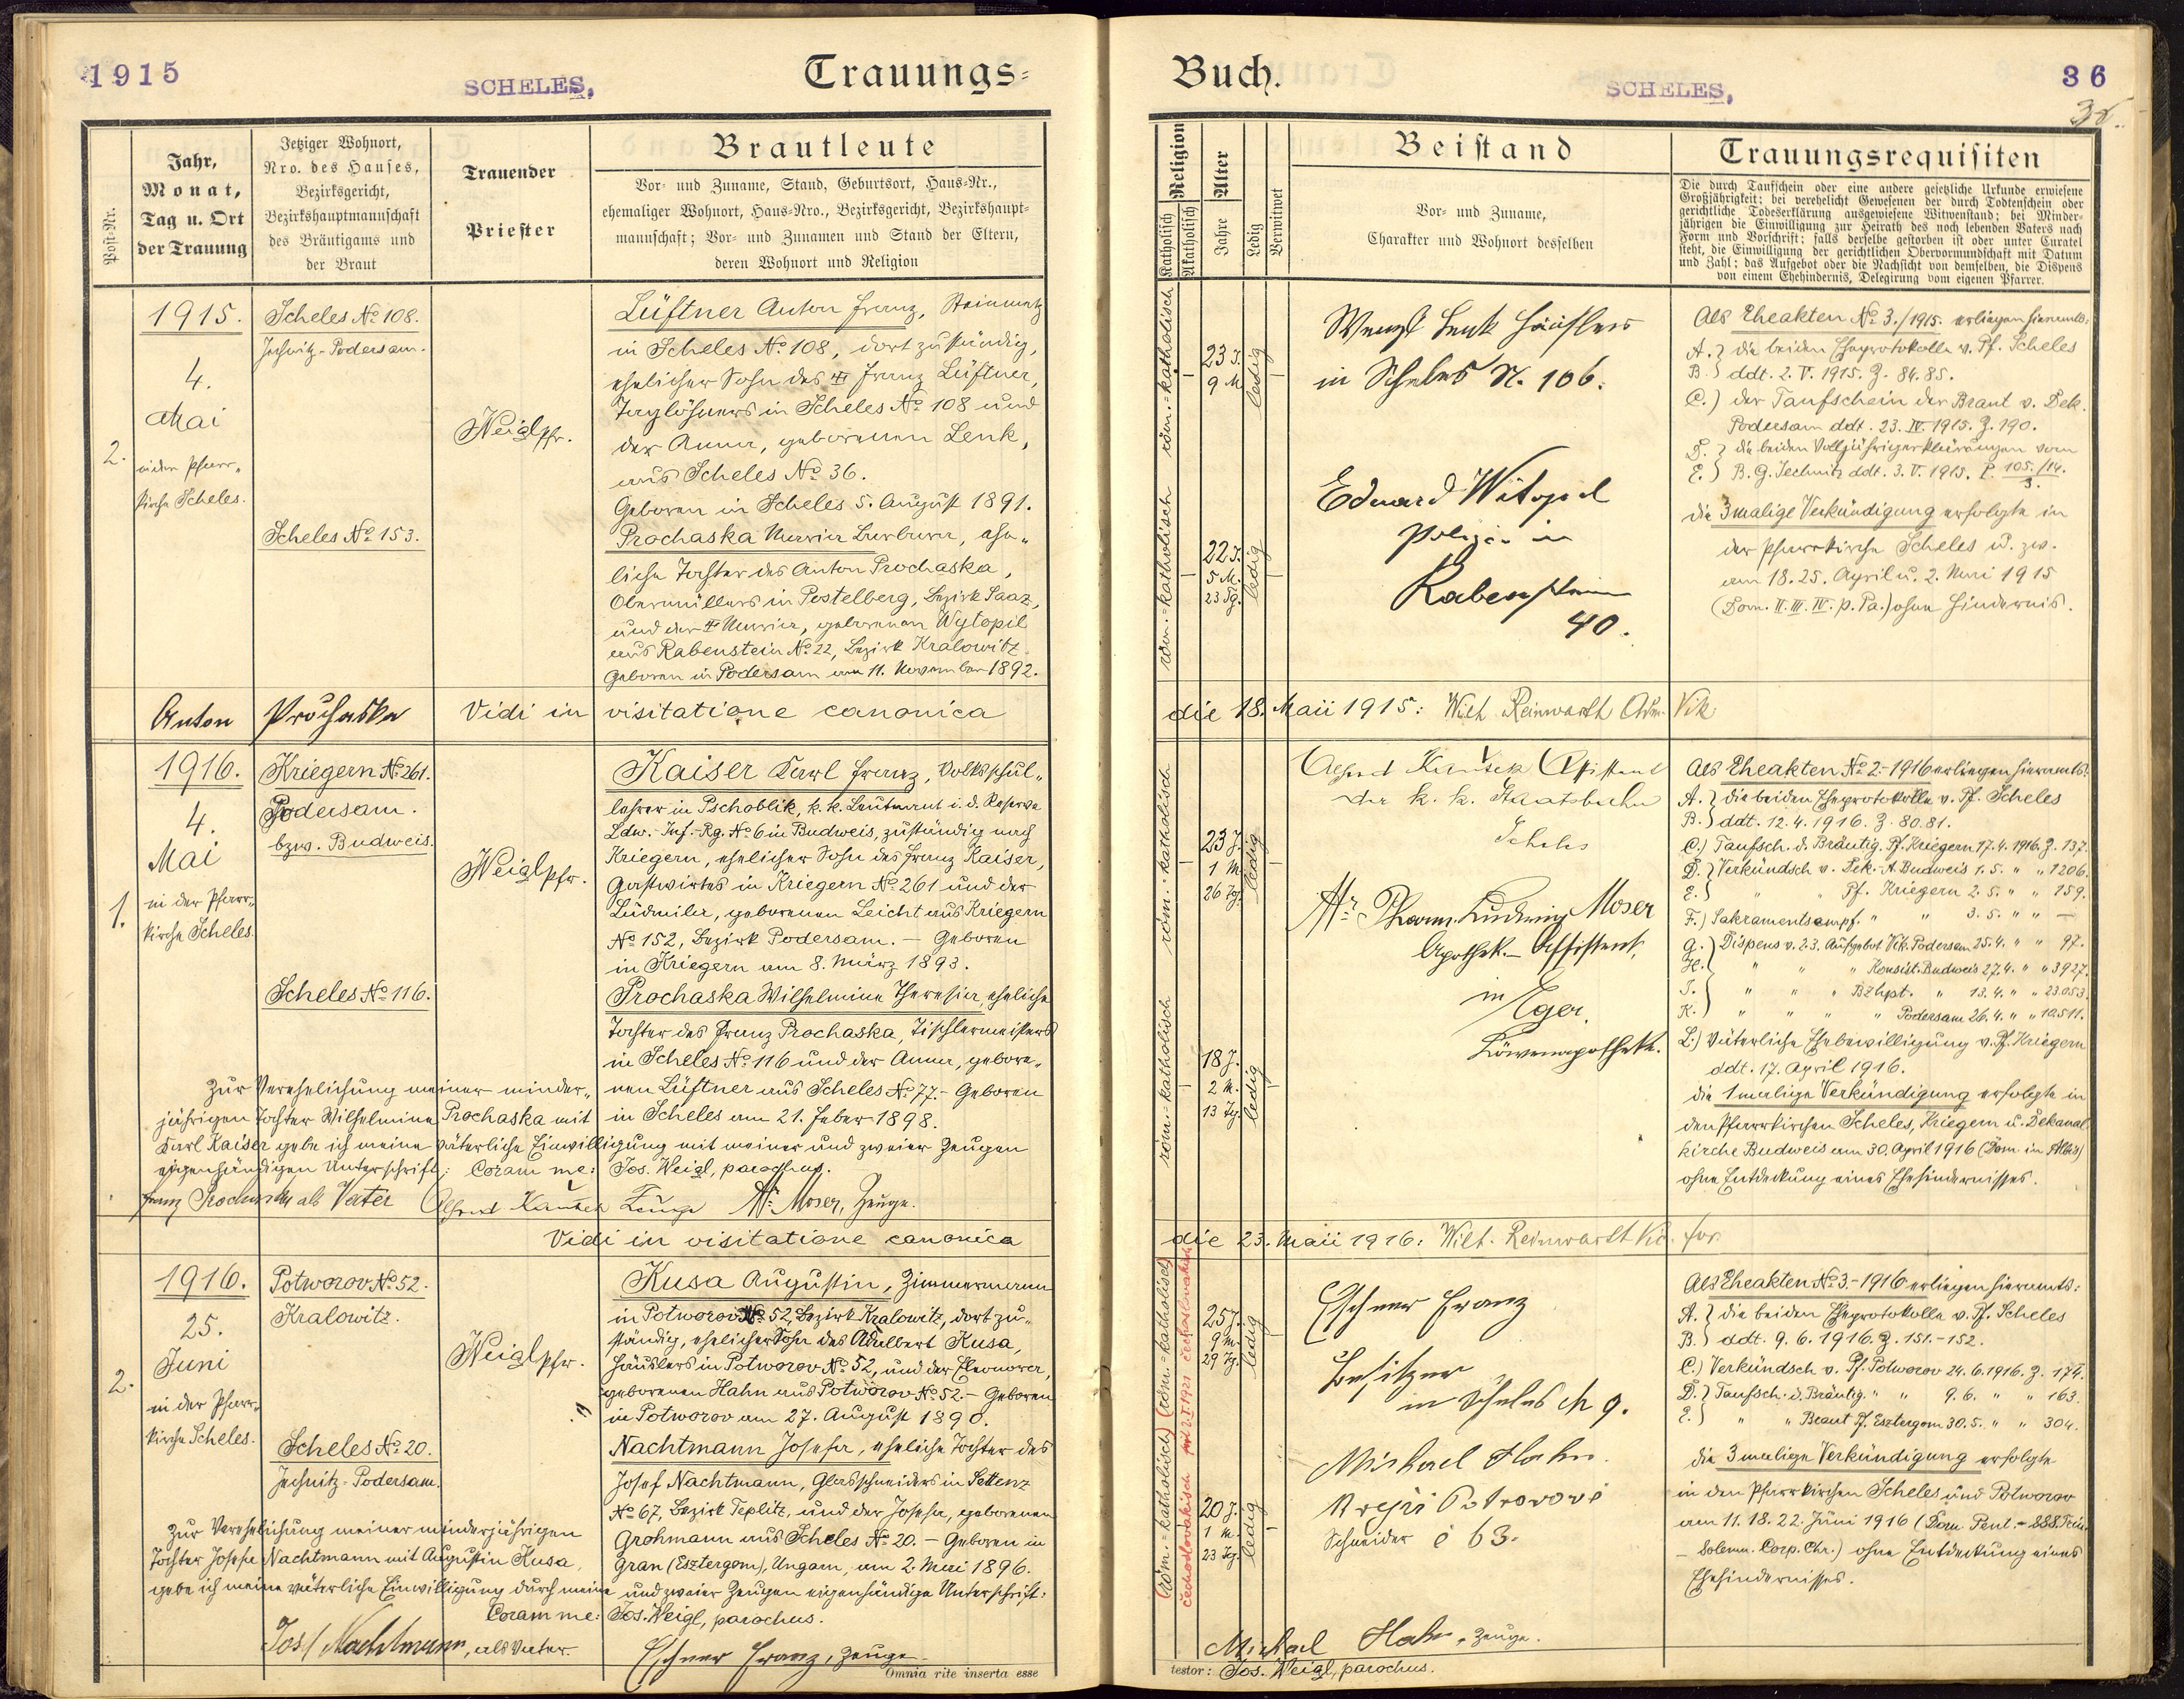 1915
SCHELES,
Trauungs=
Post-Nr.
Jahr,
Monat,
Tag u. Ort
der Trauung
Jetziger Wohnort,
Nro. des Hauses,
Bezirksgericht,
Bezirkshauptmannschaft
des Bräutigams und
der Braut
Trauender
Priester
Brautleute
Vor- und Zuname, Stand, Geburtsort, Haus-Nr.,
ehemaliger Wohnort, Haus-Nro., Bezirksgericht, Bezirkshaupt-
mannschaft; Vor- und Zunamen und Stand der Eltern,
deren Wohnort und Religion
2.
1915.
4.
Mai
in der Pfarr-
kirche Scheles.
Scheles № 108.
Jechnitz-Podersam.
Scheles № 153.
Weigl pfr.
Lüftner Anton Franz, Steinmetz
in Scheles № 108, dort zuständig,
ehelicher Sohn des Franz Lüftner,
Taglöhners in Scheles № 108 und
der Anna, geborenen Lenk,
aus Scheles № 36.
Geboren in Scheles 5. August 1891.
Prochaska Maria Barbara, ehe-
liche Tochter des Anton Prochaska,
Obermüllers in Postelberg, Bezirk Saaz,
und der Maria, geborenen Wytopil
aus Rabenstein № 22, Bezirk Kralowitz.
Geboren in Podersam am 11. November 1892.
Anton Prochaska
Vidi in visitatione canonica
1.
1916.
4.
Mai
in der Pfarr-
kirche Scheles.
Kriegern № 261.
Podersam.
bzw. Budweis.
Scheles № 116.
Weigl pfr.
Kaiser Karl Franz, Volksschul-
lehrer in Pschoblik, k. k. Leutnant i. d. Reserve
Ldw.-Inf.-Rg. № 6 in Budweis, zuständig nach
Kriegern, ehelicher Sohn des Franz Kaiser,
Gastwirtes in Kriegern № 261 und der
Ludmila, geborenen Leicht aus Kriegern
№ 152, Bezirk Podersam. — Geboren
in Kriegern am 8. März 1893.
Prochaska Wilhelmine Theresia, eheliche
Tochter des Franz Prochaska, Tischlermeisters
in Scheles № 116 und der Anna, gebore-
nen Lüftner aus Scheles № 77. - Geboren
in Scheles am 21. Feber 1898.
Zur Verehelichung meiner minder-
jährigen Tochter Wilhelmine Prochaska mit
Karl Kaiser gebe ich meine väterliche Einwilligung mit meiner und zweier Zeugen
eigenhändigen Unterschrift: Coram me: Jos. Weigl, parochus.
Franz Prochaska als Vater Alfred Zeuge Moser, Zeuge.
Vidi in visitatione canonica
2.
1916.
25.
Juni
in der Pfarr-
kirche Scheles.
Potworov № 52.
Kralowitz.
Scheles № 20.
Jechnitz-Podersam.
Weigl pfr.
Kusa Augustin, Zimmermann
in Potworov № 52, Bezirk Kralowitz, dort zu-
ständig, ehelicher Sohn des Adalbert Kusa,
Häuslers in Potworov № 52, und der Eleonora,
geborenen Hahn aus Potworov № 52. - Geboren
in Potworov am 27. August 1890.
Nachtmann Josefa, eheliche Tochter des
Josef Nachtmann, Glasschneiders in Settenz
№ 67, Bezirk Teplitz, und der Josefa, geborenen
Grohmann aus Scheles № 20. - Geboren in
Gran (Esztergom), Ungarn, am 2. Mai 1896.
Zur Verehelichung meiner minderjährigen
Tochter Josefa Nachtmann mit Augustin Kusa,
gebe ich meine väterliche Einwilligung durch meine und zweier Zeugen eigenhändige Unterschrift:
Coram me: Jos. Weigl, parochus.
Jos. Nachtmann, als Vater.
Eschner Franz, Zeuge.
Omnia rite inserta esse
Buch.
SCHELES,
36
Religion
Katholisch
Akatholisch
Alter
Jahre
Ledig
Verwitwet
Beistand
Vor- und Zuname,
Charakter und Wohnort desselben
Trauungsrequisiten
Die durch Taufschein oder eine andere gesetzliche Urkunde erwiesene
Großjährigkeit; bei verehelicht Gewesenen der durch Todtenschein oder
gerichtliche Todeserklärung ausgewiesene Witwenstand; bei Minder-
jährigen die Einwilligung zur Heirath des noch lebenden Vaters nach
Form und Vorschrift; falls derselbe gestorben ist oder unter Curatel
steht, die Einwilligung der gerichtlichen Obervormundschaft mit Datum
und Zahl; das Aufgebot oder die Nachsicht von demselben, die Dispens
von einem Ehehindernis, Delegirung vom eigenen Pfarrer.
röm.=katholisch
23 J.
9 M.
ledig
röm.=katholisch
22 J.
5 M.
23 Tg.
ledig
Wenzl Lenk Häusler
in Scheles N. 106.
Eduard Witopil
in
Rabenstein
40.
Als Eheakten № 3./1915. erliegen hieramts:
A.} die beiden Eheprotokolle v. Pf. Scheles
B.} ddt. 2. V. 1915. Z. 84. 85.
C.) der Taufschein der Braut v. Dek.
Podersam ddt. 23. IV. 1915. Z. 190.
D.} die beiden Volljährigerklärungen vom
E.} B. G. Jechnitz ddt. 3. V. 1915. P. 105./14.
3.
die 3malige Verkündigung erfolgte in
der Pfarrkirche Scheles u. zw.
am 18. 25. April u. 2. Mai 1915
(Dom. II. III. IV. p. Pa.) ohne Hindernis.
die 18. Maii 1915: Wilh. Reinwarth Adm. Vik.
röm.-katholisch
23 J.
1 M.
26 Tg.
ledig
röm.-katholisch
18 J.
2 M.
13 Tg.
ledig
Alfred Assistent
der k. k. Staatsbahn
Scheles
Pharm. Ludwig Moser
Apothek.-Assistent,
in Eger.
Löwenapotheke.
Als Eheakten № 2.-1916 erliegen hieramts:
A.} die beiden Eheprotokolle v. Pf. Scheles
B.} ddt. 12. 4. 1916. Z. 80.81.
C.) Taufsch. d. Bräutig. Pf. Kriegern 17. 4. 1916. Z. 137.
D.} Verkündsch v. Dek.-A. Budweis 1. 5. " " 1206.
E.} " " Pf. Kriegern 2. 5. " " 159.
F.) Sakramentsempf. " " 3. 5. " " —
G.} Dispens v. 2.3. Aufgebot Vik. Podersam 25. 4. " " 97.
H.} " " " Konsist. Budweis 27. 4. " " 3927.
I.} " " " Bzhpt. " 13. 4. " " 23.053.
K.} " " " " Podersam 26. 4. " " 10.511.
L.) väterliche Ehebewilligung v. Pf. Kriegern
ddt. 17. April 1916.
die 1malige Verkündigung erfolgte in
den Pfarrkirchen Scheles, Kriegern u. Dekanal-
kirche Budweis am 30. April 1916 (Dom. in Albis)
ohne Entdeckung eines Ehehindernisses.
die 23. Maii 1916: Wilh. Reinwarth Vic. for.
(röm.-katholisch)
čechoslovakisch
25 J.
9 M.
29 Tg.
ledig
(röm.-katholisch)
čechoslovakisch
20 J.
1 M.
23 Tg.
ledig
Eschner Franz
Besitzer
in Scheles № 9.
Michael Hahn.
Schneider č 63.
Als Eheakten № 3.-1916 erliegen hieramts:
A.} die beiden Eheprotokolle v. Pf. Scheles
B.} ddt. 9. 6. 1916. Z. 151.-152.
C.) Verkündsch. v. Pf. Potworov 24. 6. 1916. Z. 174.
D.} Taufsch. d. Bräutig. " " 9. 6. " " 163.
E.} " " Braut Pf. Esztergom 30. 5. " " 304.
die 3malige Verkündigung erfolgte
in den Pfarrkirchen Scheles und Potworov
am 11. 18. 22. Juni 1916 (Dom. Pent. - SSS. Trin.
- Solemn. Corp. Chr.) ohne Entdeckung eines
Ehehindernisses.
Michael Hahn, Zeuge.
testor: Jos. Weigl, parochus.